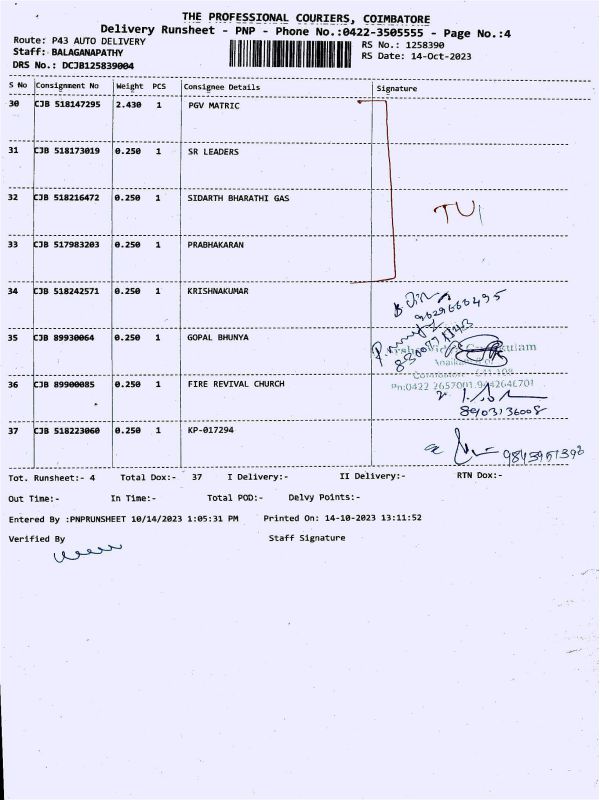 THE PROFESSIONAL COURIERS, COIMBATORE
Delivery Runsheet - PNP - Phone No.:0422-3505555 - Page No.:4
Route: P43 AUTO DELIVERY
RS No.: 1258390
Staff: BALAGANAPATHY
RS Date: 14-Oct-2023
DRS No.: DCJB125839004
S No Consignment No Weight PCS Consignee Details Signature
30 CJB 518147295 2.430 1 PGV MATRIC
31 CJB 518173019 0.250 1 SR LEADERS
32 CJB 518216472 0.250 1 SIDARTH BHARATHI GAS
TUI
33 CJB 517983203 0.250 1 PRABHAKARAN
34 CJB 518242571 0.250 1 KRISHNAKUMAR
35 CJB 89930064 0.250 1 GOPAL BHUNYA
36 CJB 89900085 0.250 1 FIRE REVIVAL CHURCH
Ph:0422 2657001,9442646701
8903136008
37 CJB 518223060 0.250 1 KP-017294
9843951398
Tot. Runsheet:- 4 Total Dox:- 37 I Delivery:- II Delivery:- RTN Dox:-
Out Time:- In Time:- Total POD:- Delvy Points:-
Entered By :PNPRUNSHEET 10/14/2023 1:05:31 PM Printed On: 14-10-2023 13:11:52
Verified By Staff Signature